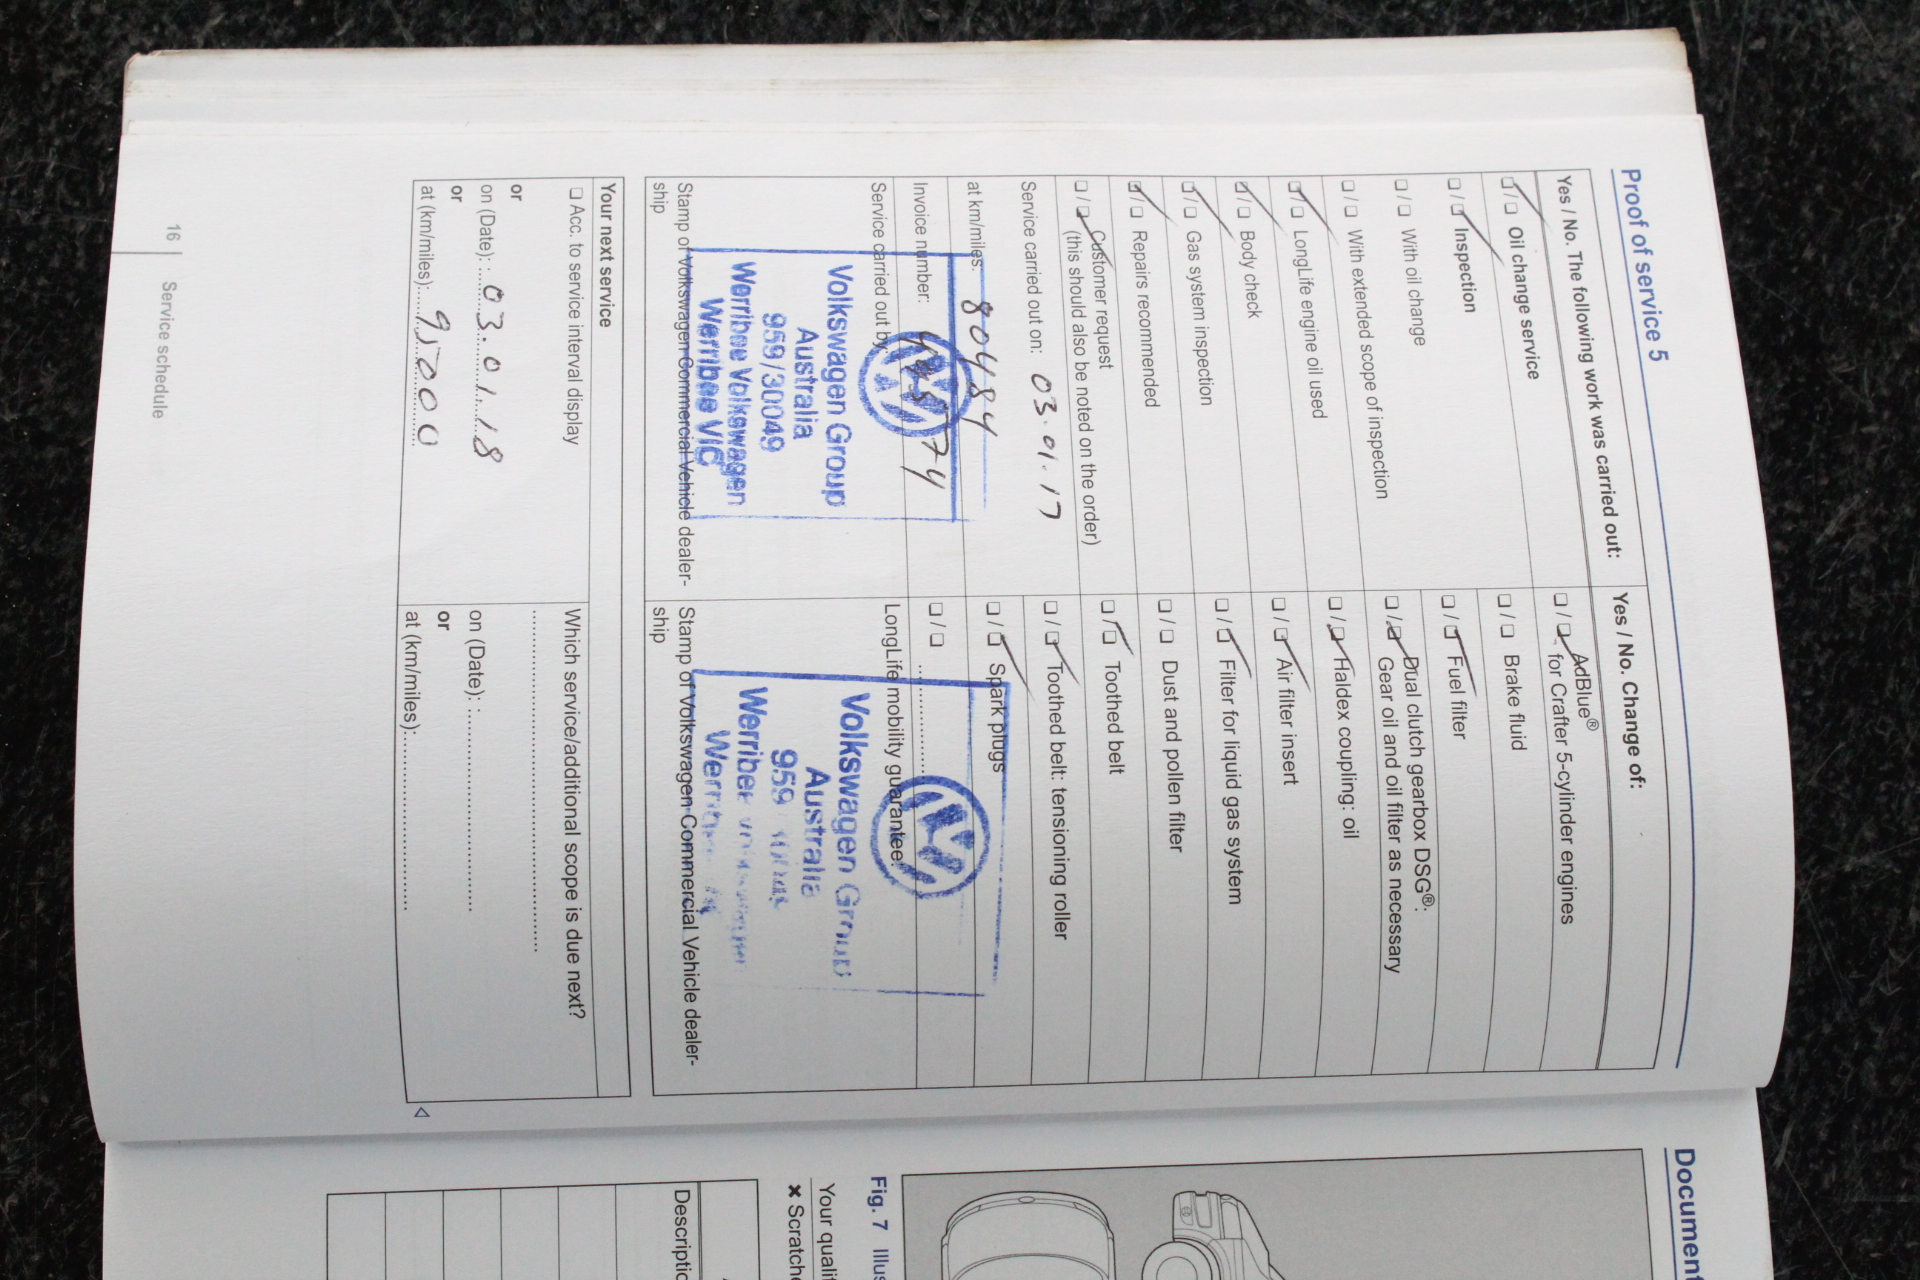 Proof of service 5
Yes / No. The following work was carried out:
❏ / ❏ Oil change service
❏ / ❏ Inspection
❏ / ❏ With oil change
❏ / ❏ With extended scope of inspection
❏ / ❏ LongLife engine oil used
❏ / ❏ Body check
❏ / ❏ Gas system inspection
❏ / ❏ Repairs recommended
❏ / ❏ Customer request
(this should also be noted on the order)
Service carried out on: 03.01.17
at km/miles: 80484
Invoice number:
Service carried out by:
Volkswagen Group
Australia
959/30049
Werribee Volkswagen
Werribee VIC
Stamp of Volkswagen Commercial Vehicle dealer-
ship
Yes / No. Change of:
❏ / ❏ AdBlue®
for Crafter 5-cylinder engines
❏ / ❏ Brake fluid
❏ / ❏ Fuel filter
❏ / ❏ Dual clutch gearbox DSG®:
Gear oil and oil filter as necessary
❏ / ❏ Haldex coupling: oil
❏ / ❏ Air filter insert
❏ / ❏ Filter for liquid gas system
❏ / ❏ Dust and pollen filter
❏ / ❏ Toothed belt
❏ / ❏ Toothed belt: tensioning roller
❏ / ❏ Spark plugs
❏ / ❏ ....................
LongLife mobility guarantee:
Volkswagen Group
Australia
959
Werribee
Stamp of Volkswagen Commercial Vehicle dealer-
ship
Your next service
❏ Acc. to service interval display
or
on (Date): 03.01.18
or
at (km/miles): 95000
Which service/additional scope is due next?
on (Date):
or
at (km/miles):
16 Service schedule
Document
Fig. 7
Your